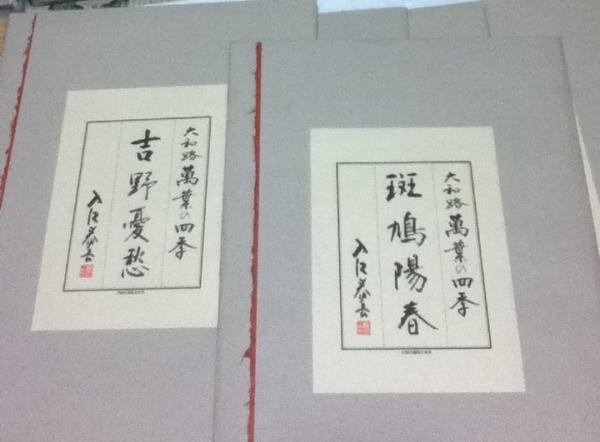 大和路萬葉の四季
吉野憂愁
入江泰吉
大和路萬葉の四季
斑鳩陽春
入江泰吉